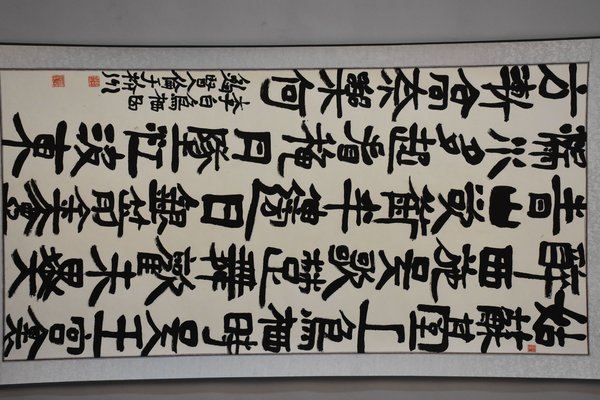 姑蘇臺上烏栖時吳王宮裏
醉西施吳歌楚舞歡未畢
青山欲銜半邊日銀箭金壺
漏水多起看秋月墜江波東
方漸高奈樂何
李白烏栖曲